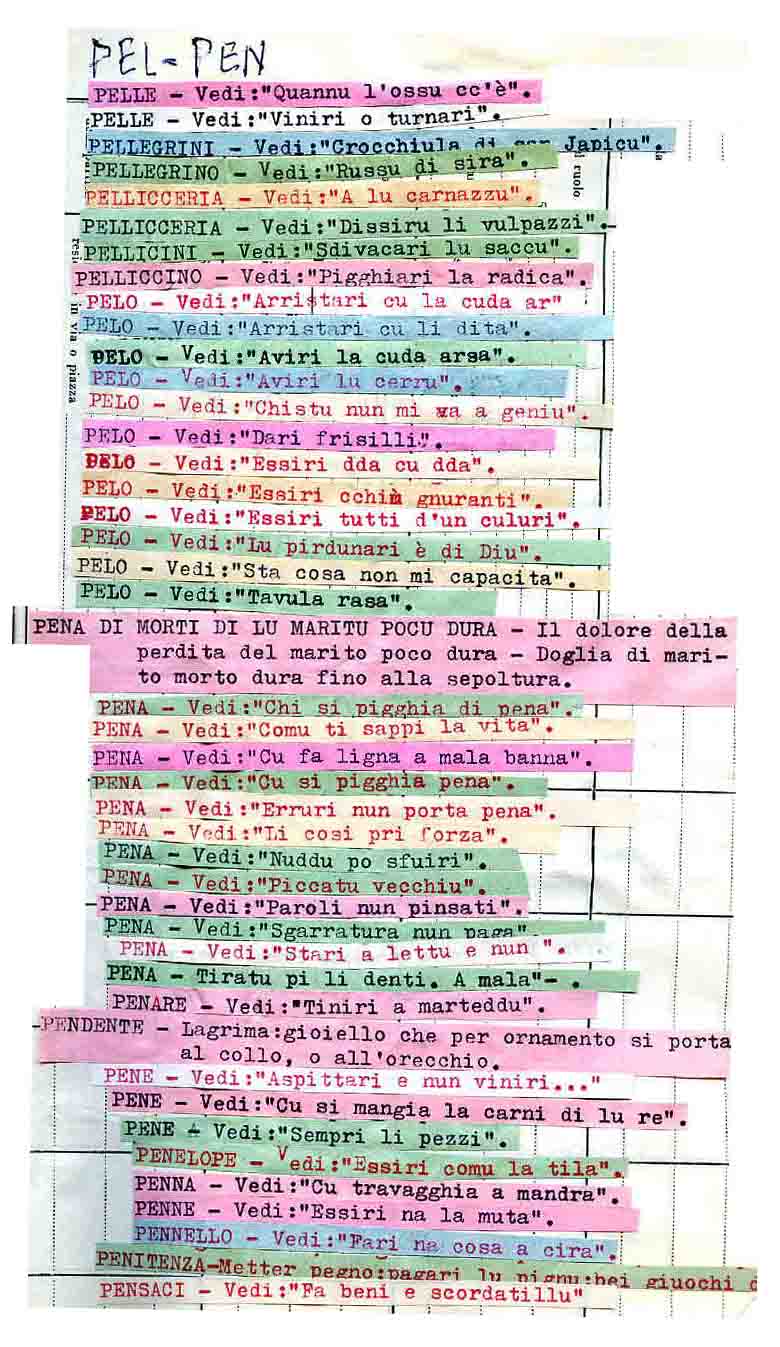 PEL-PEN
PELLE - Vedi:"Quannu l'ossu cc'è".
PELLE - Vedi:"Viniri o turnari".
PELLEGRINI - Vedi:"Crocchiula di san Japicu".
PELLEGRINO - Vedi:"Russu di sira".
ruolo
PELLICCERIA - Vedi:"A lu carnazzu".
PELLICCERIA - Vedi:"Dissiru li vulpazzi".
PELLICINI - Vedi:"Sdivacari lu saccu".
PELLICCINO - Vedi:"Pigghiari la radica".
PELO - Vedi:"Arristari cu la cuda ar"
PELO - Vedi:"Arristari cu li dita".
in via o piazza
PELO - Vedi:"Aviri la cuda arsa".
PELO - Vedi:"Aviri lu cerru".
PELO - Vedi:"Chistu nun mi va a geniu".
PELO - Vedi:"Dari frisilli".
PELO - Vedi:"Essiri dda cu dda".
PELO - Vedi:"Essiri cchiù gnuranti".
PELO - Vedi:"Essiri tutti d'un culuri".
PELO - Vedi:"Lu pirdunari è di Diu".
PELO - Vedi:"Sta cosa non mi capacita".
PELO - Vedi:"Tavula rasa".
PENA DI MORTI DI LU MARITU POCU DURA - Il dolore della
perdita del marito poco dura - Doglia di mari-
to morto dura fino alla sepoltura.
PENA - Vedi:"Chi si pigghia di pena".
PENA - Vedi:"Comu ti sappi la vita".
PENA - Vedi:"Cu fa ligna a mala banna".
PENA - Vedi:"Cu si pigghia pena".
PENA - Vedi:"Erruri nun porta pena".
PENA - Vedi:"Li cosi pri forza".
PENA - Vedi:"Nuddu po sfuiri".
PENA - Vedi:"Piccatu vecchiu".
PENA - Vedi:"Paroli nun pinsati".
PENA - Vedi:"Sgarratura nun paga".
PENA - Vedi:"Stari a lettu e nun ".
PENA - Tiratu pi li denti. A mala"- .
PENARE - Vedi:"Tiniri a marteddu".
-PENDENTE - Lagrima:gioiello che per ornamento si porta
al collo, o all'orecchio.
PENE - Vedi:"Aspittari e nun viniri..."
PENE - Vedi:"Cu si mangia la carni di lu re".
PENE - Vedi:"Sempri li pezzi".
PENELOPE - Vedi:"Essiri comu la tila".
PENNA - Vedi:"Cu travagghia a mandra".
PENNE - Vedi:"Essiri na la muta".
PENNELLO - Vedi:"Fari na cosa a cira".
PENITENZA-Metter pegno:pagari lu pignu:nei giuochi d
PENSACI - Vedi:"Fa beni e scordatillu"